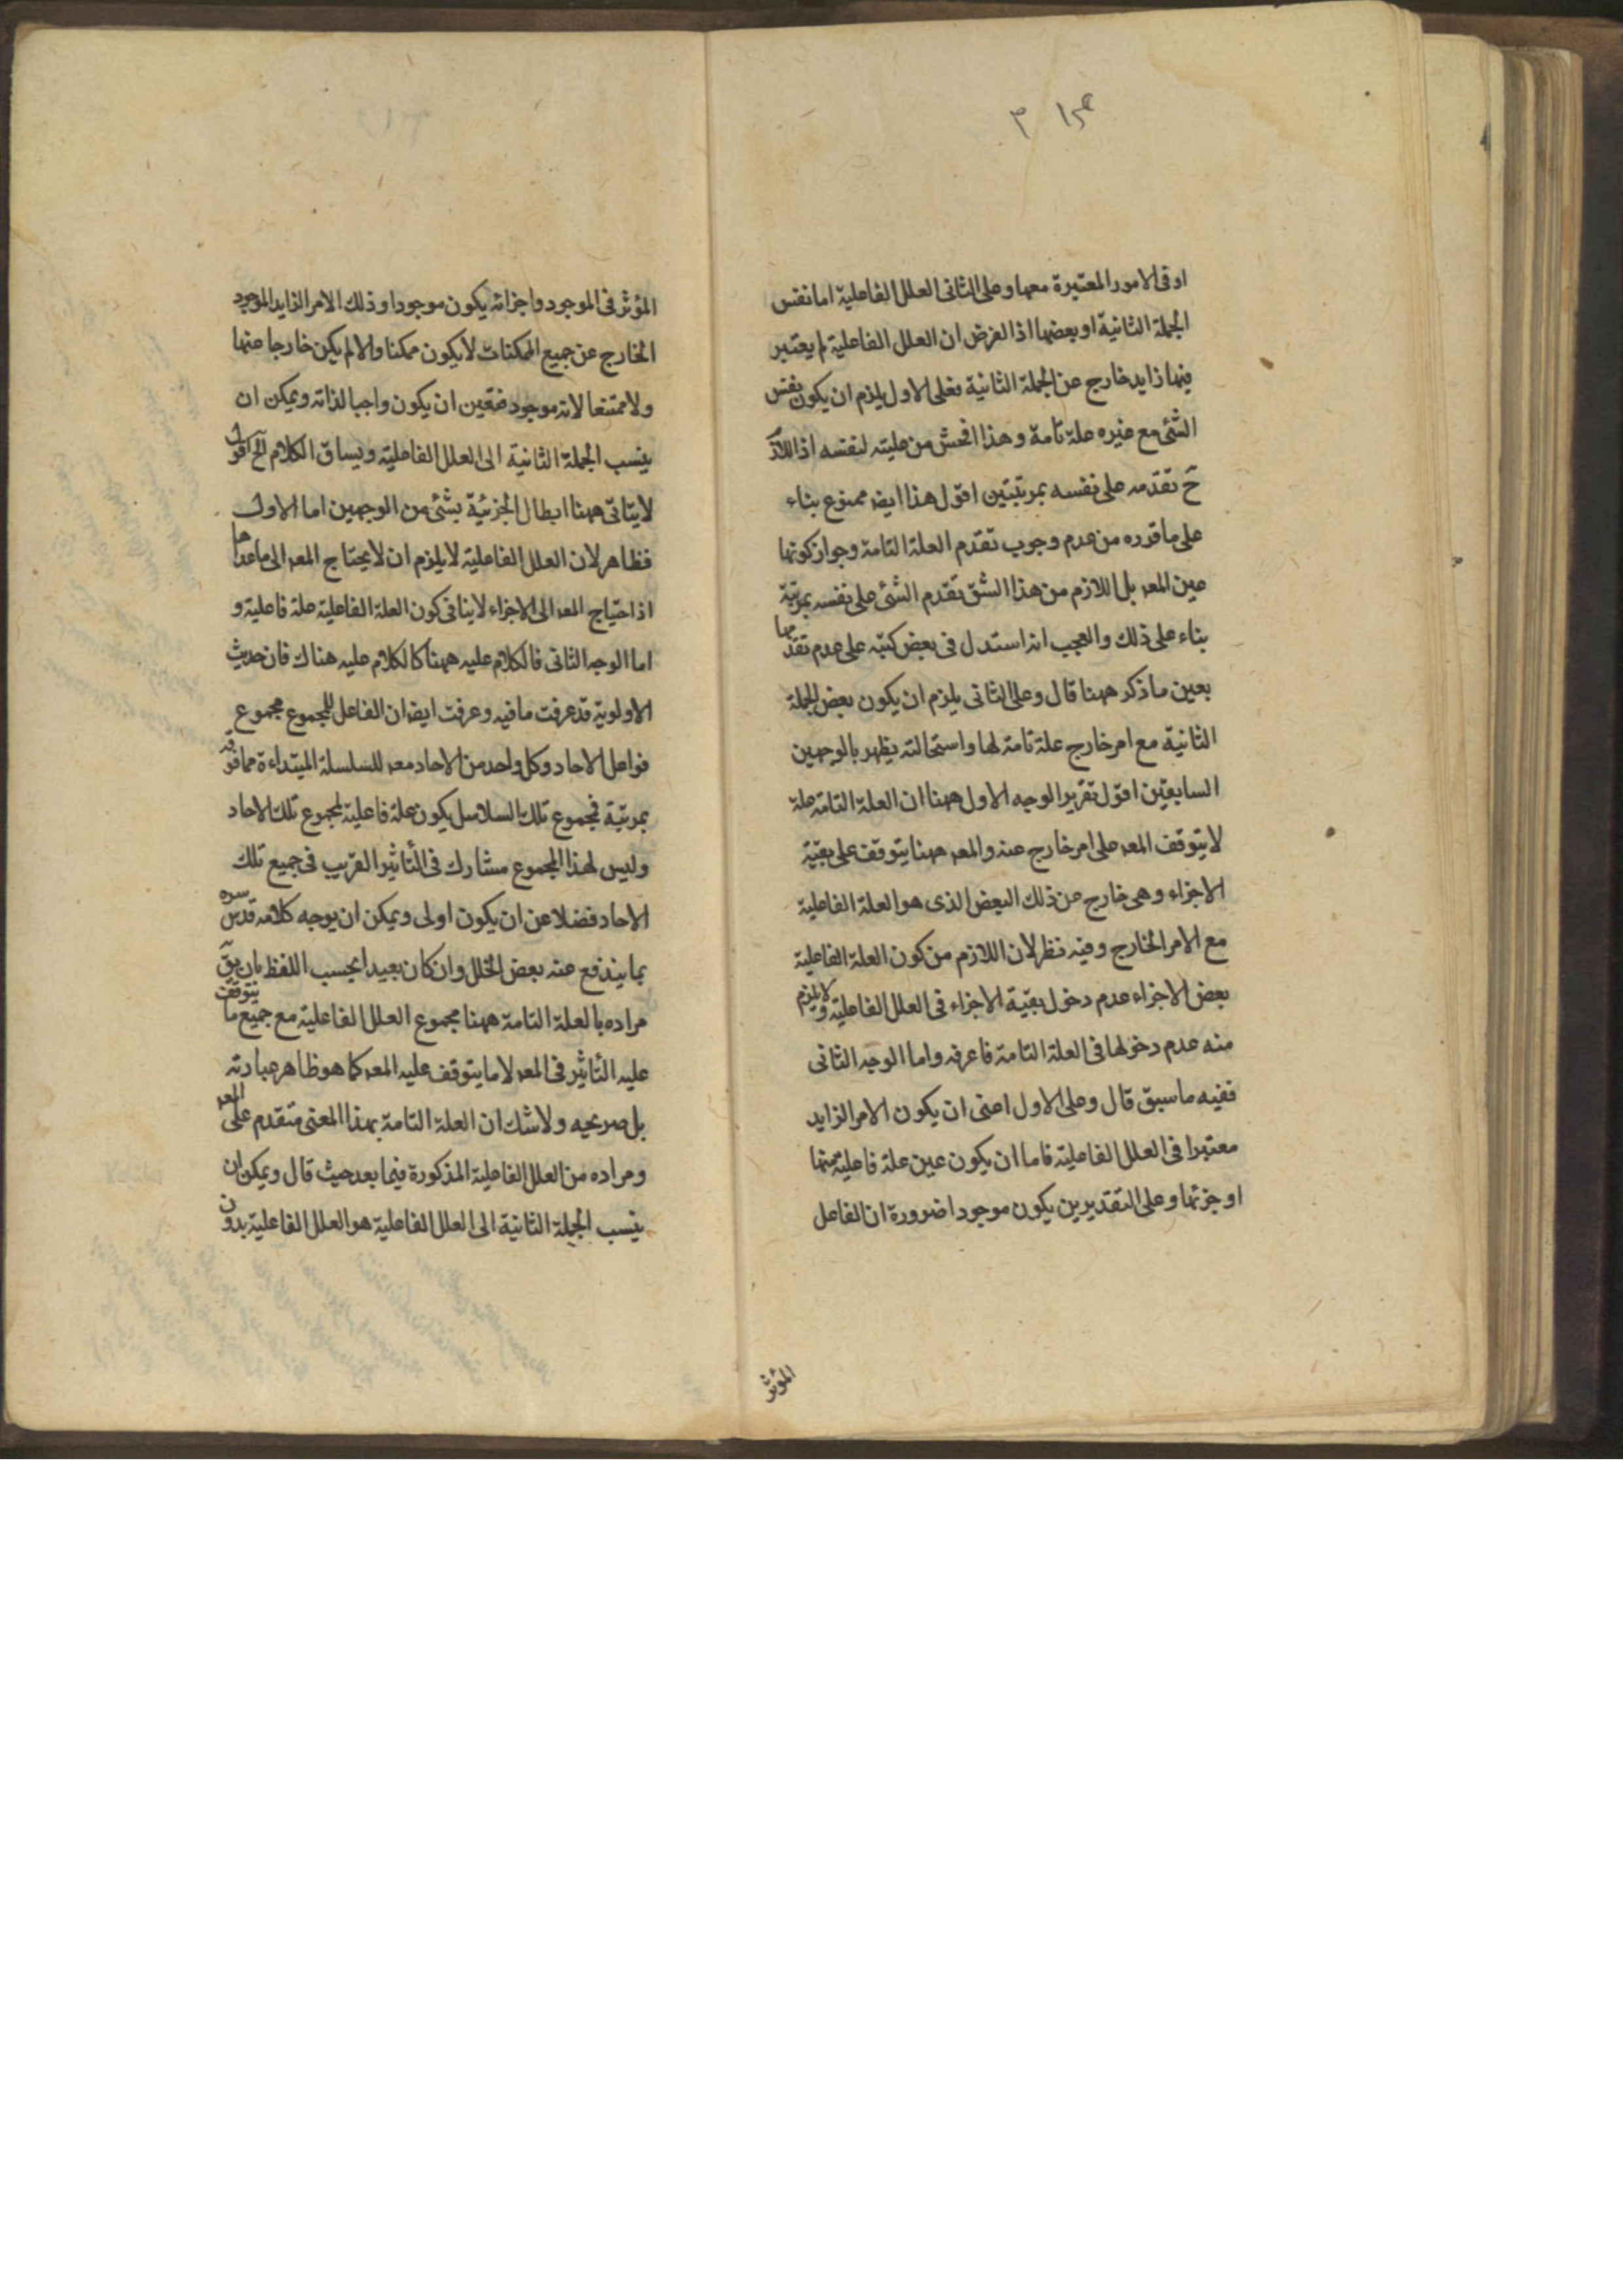 او فى الامور المعتبرة معها وعلى الثانى العلل الفاعلية اما نفس
الجملة الثانية او بعضها اذ الفرض ان العلل الفاعلية لم يعتبر
فيها زايد خارج عن الجملة الثانية فعلى الاول يلزم ان يكون نفس
الشئ مع غيره علة تامة وهذا افحش من عليته لنفسه اذ اللازم
ح تقدمه على نفسه بمرتبتين اقول هذا ايضا ممنوع بناء
على ما قرره من عدم وجوب تقدم العلة التامة وجواز كونها
عين المعه بل اللازم من هذا الشق تقدم الشئ على نفسه بمرتبة
بناء على ذلك والعجب انه استدل فى بعض كتبه على عدم تقدمها
بعين ما ذكر ههنا قال وعلى الثانى يلزم ان يكون بعض الجملة
الثانية مع امر خارج علة تامة لها واستحالته يظهر بالوجهين
السابقين اقول تقرير الوجه الاول ههنا ان العلة التامة علة
لا يتوقف المعه على امر خارج عنه والمعه ههنا يتوقف على بقية
الاجزاء وهى خارج عن ذلك البعض الذى هو العلة الفاعلية
مع الامر الخارج وفيه نظر لان اللازم من كون العلة الفاعلية
بعض الاجزاء عدم دخول بقية الاجزاء فى العلل الفاعلية ولا يلزم
منه عدم دخولها فى العلة التامة فاعرفه واما الوجه الثانى
ففيه ما سبق قال وعلى الاول اعنى ان يكون الامر الزايد
معتبرا فى العلل الفاعلية فاما ان يكون عين علة فاعلية منها
او جزئها وعلى التقديرين يكون موجودا ضرورة ان الفاعل
المؤثر
المؤثر فى الموجود واجزائه يكون موجودا وذلك الامر الزايد الموجود
الخارج عن جميع الممكنات لا يكون ممكنا والا لم يكن خارجا عنها
ولا ممتنعا لانه موجود فتعين ان يكون واجبا لذاته ويمكن ان
ينسب الجملة الثانية الى العلل الفاعلية ويساق الكلام الخ اقول
لا يتاتى ههنا ابطال الجزئية بشئ من الوجهين اما الاول
فظاهر لان العلل الفاعلية لا يلزم ان لا يحتاج المعه الى ما عداها
اذ احتياج المعه الى الاجزاء لا ينافى كون العلة الفاعلية علة فاعلية و
اما الوجه الثانى فالكلام عليه ههنا كالكلام عليه هناك فان حديث
الاولوية قد عرفت ما فيه وعرفت ايضا ان الفاعل للمجموع مجموع
فواعل الاحاد وكل واحد من الاحاد معه للسلسلة المبتداءة مما فوقه
بمرتبة فمجموع تلك السلاسل يكون علة فاعلية لمجموع تلك الاحاد
وليس لهذا المجموع مشارك فى التأثير القريب فى جميع تلك
الاحاد فضلا عن ان يكون اولى ويمكن ان يوجه كلامه قدس سره
بما يندفع عنه بعض الخلل وان كان بعيدا بحسب اللفظ بان يق
مراده بالعلة التامة ههنا مجموع العلل الفاعلية مع جميع ما يتوقف
عليه التأثير فى المعه لا ما يتوقف عليه المعه كما هو ظاهر عبارته
بل صريحيه ولا شك ان العلة التامة بهذا المعنى متقدم على المعه
ومراده من العلل الفاعلية المذكورة فيما بعد حيث قال ويمكن ان
ينسب الجملة الثانية الى العلل الفاعلية هو العلل الفاعلية بدون